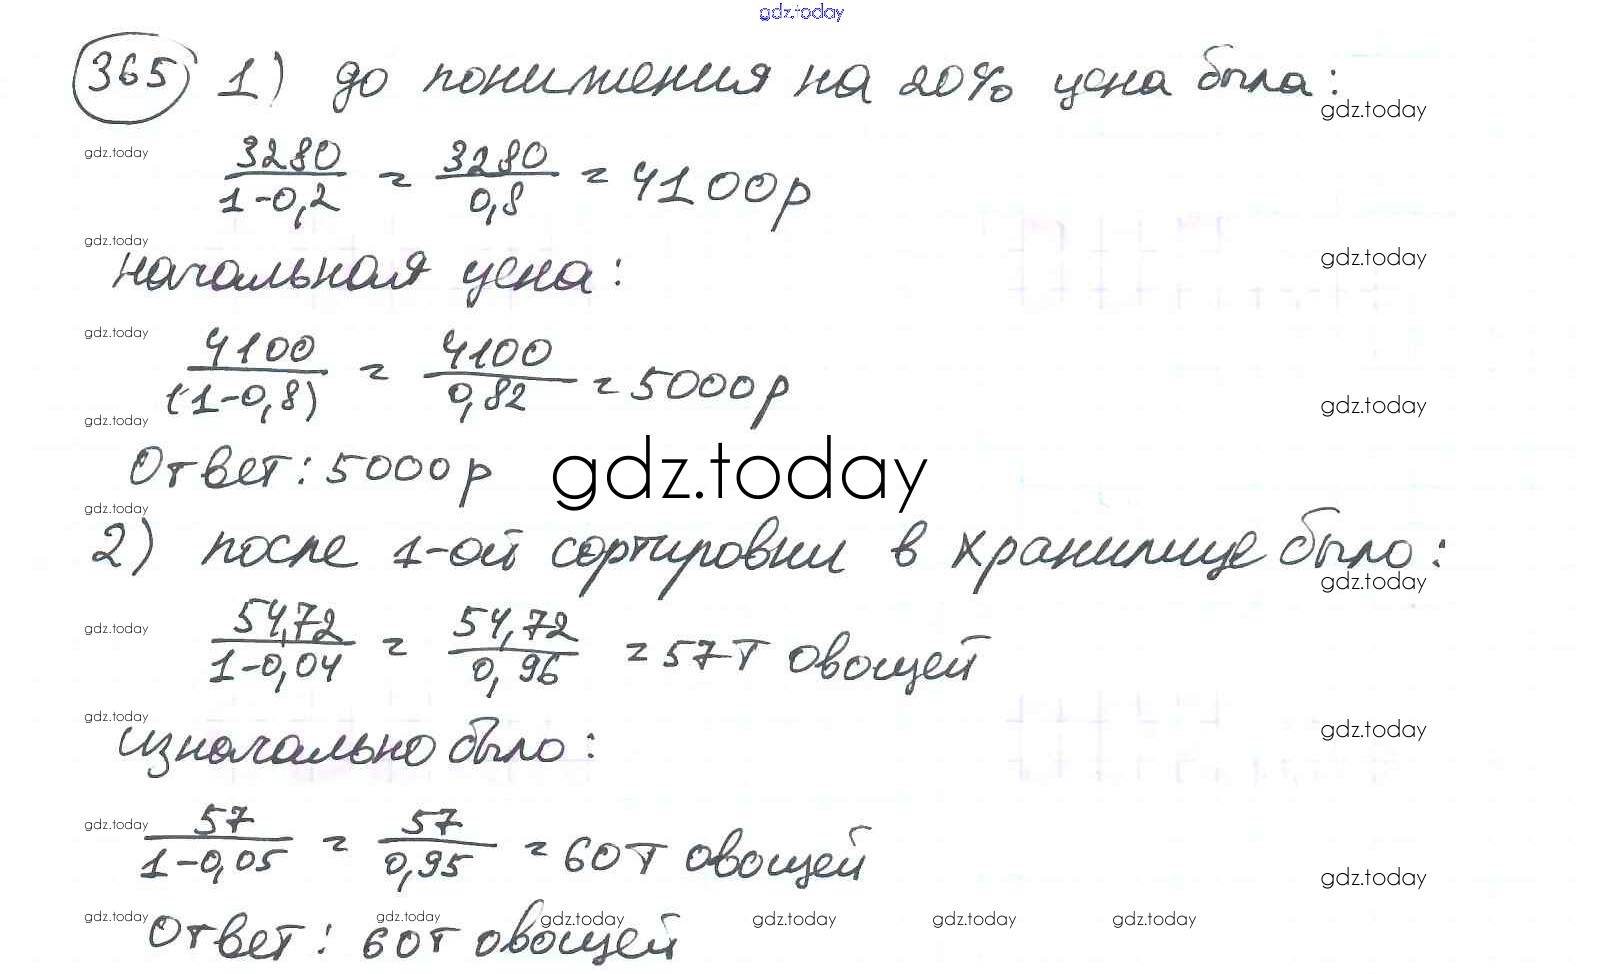 gdz.today
365 1) до понижения на 20% цена была:
gdz.today
gdz.today
3280/1-0,2 = 3280/0,8 = 4100р
gdz.today
gdz.today
начальная цена:
gdz.today
4100/(1-0,8) = 4100/0,82 = 5000р
gdz.today
gdz.today
Ответ: 5000р
gdz.today
gdz.today
2) после 1-ой сортировки в хранилище было:
gdz.today
54,72/1-0,04 = 54,72/0,96 = 57т овощей
gdz.today
gdz.today
gdz.today
изначально было:
gdz.today
57/1-0,05 = 57/0,95 = 60т овощей
gdz.today
gdz.today gdz.today gdz.today gdz.today gdz.today gdz.today
Ответ: 60т овощей